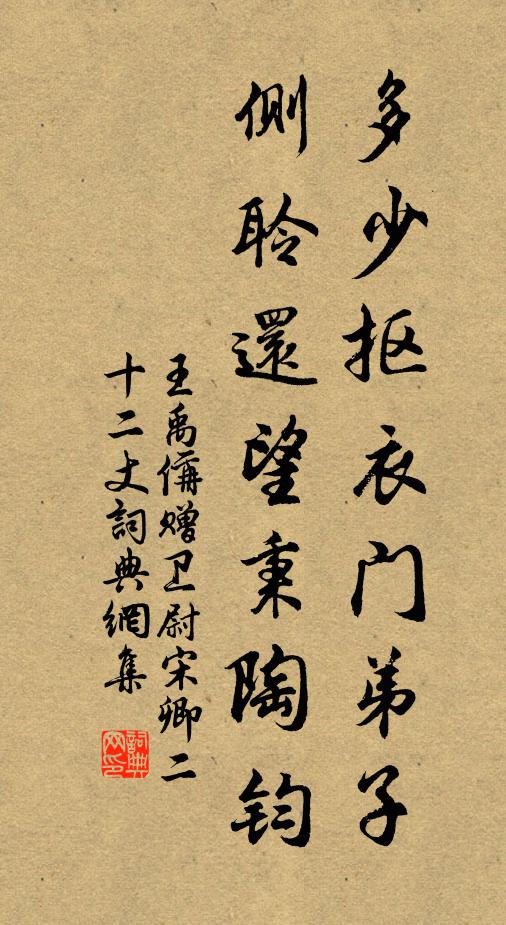 多少抠衣门弟子
侧聆還望秉陶钧
王禹偁赠卫尉宋卿二
十二丈詞典網集
詞典网印